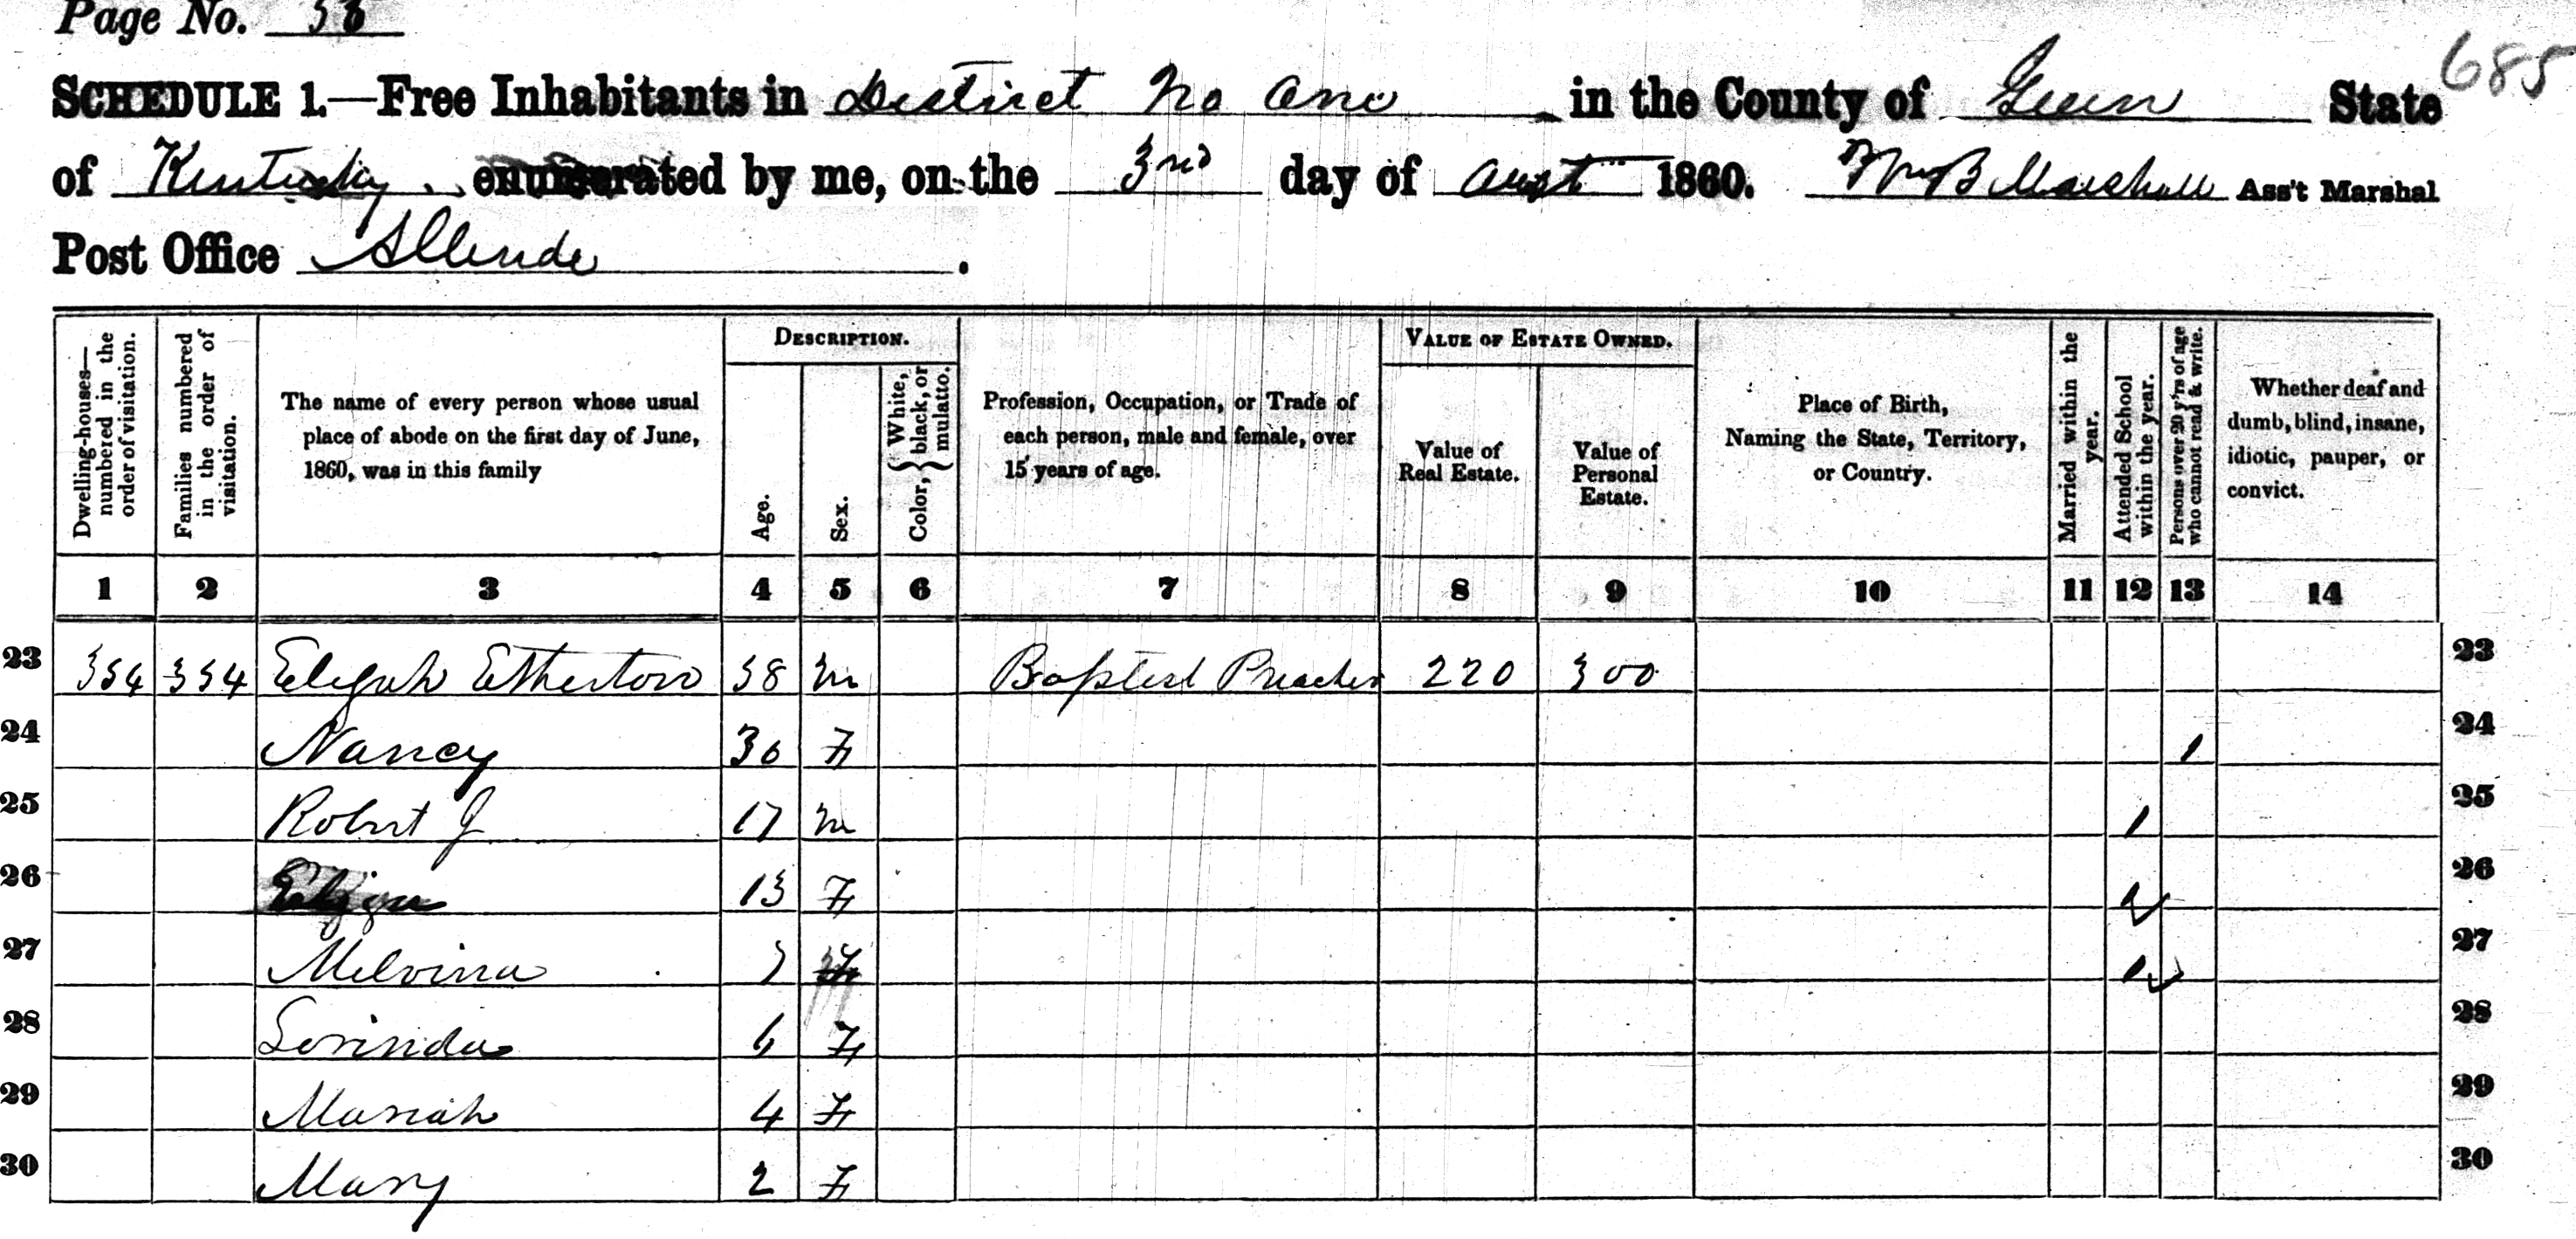 Page No. 58
685
SCHEDULE 1.—Free Inhabitants in District No One in the County of Green State
of Kentucky enumerated by me, on the 3rd day of Augst 1860. Wm B Marshall Ass't Marshal
Post Office Allende.
Dwelling-houses—numbered in the order of visitation.
Families numbered in the order of visitation.
The name of every person whose usual place of abode on the first day of June, 1860, was in this family
DESCRIPTION.
Age.
Sex.
Color, { White, black, or mulatto.
Profession, Occupation, or Trade of each person, male and female, over 15 years of age.
VALUE OF ESTATE OWNED.
Value of Real Estate.
Value of Personal Estate.
Place of Birth, Naming the State, Territory, or Country.
Married within the year.
Attended School within the year.
Persons over 20 y'rs of age who cannot read & write.
Whether deaf and dumb, blind, insane, idiotic, pauper, or convict.
1 2 3 4 5 6 7 8 9 10 11 12 13 14
23 354 354 Elijah Etherton 38 m Baptist Preacher 220 300 23
24 Nancy 36 F 1 24
25 Robert J 17 m 1 25
26 13 F 1 26
27 Melvina 7 F 1 27
28 Lorinda 6 F 28
29 Mariah 4 F 29
30 Mary 2 F 30